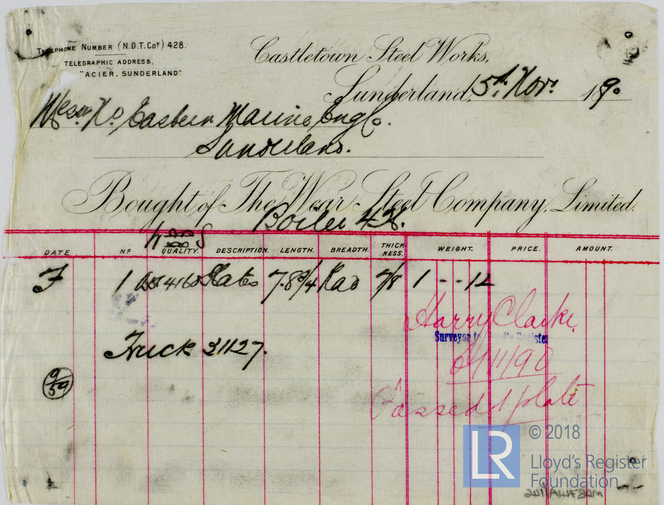 Telephone Number (N.D.T. Coy) 428.
Telegraphic Address,
"Acier, Sunderland"
Castletown Steel Works,
Sunderland, 5th Novr. 1890
Messrs No. Eastern Marine Eng Co.
Sunderland.
Bought of The Wear Steel Company, Limited.
Boiler 428.
DATE. No QUALITY. DESCRIPTION. LENGTH. BREADTH. THICKNESS. WEIGHT. PRICE. AMOUNT.
F 1 Plate 7.8 3/4 Rad 7/8 1 - - 12
Harry Clarke,
Surveyor to Lloyd's Register
Truck 31127.
5/11/90
9/59
Passed 1 plate
LR © 2018
Lloyd's Register
Foundation